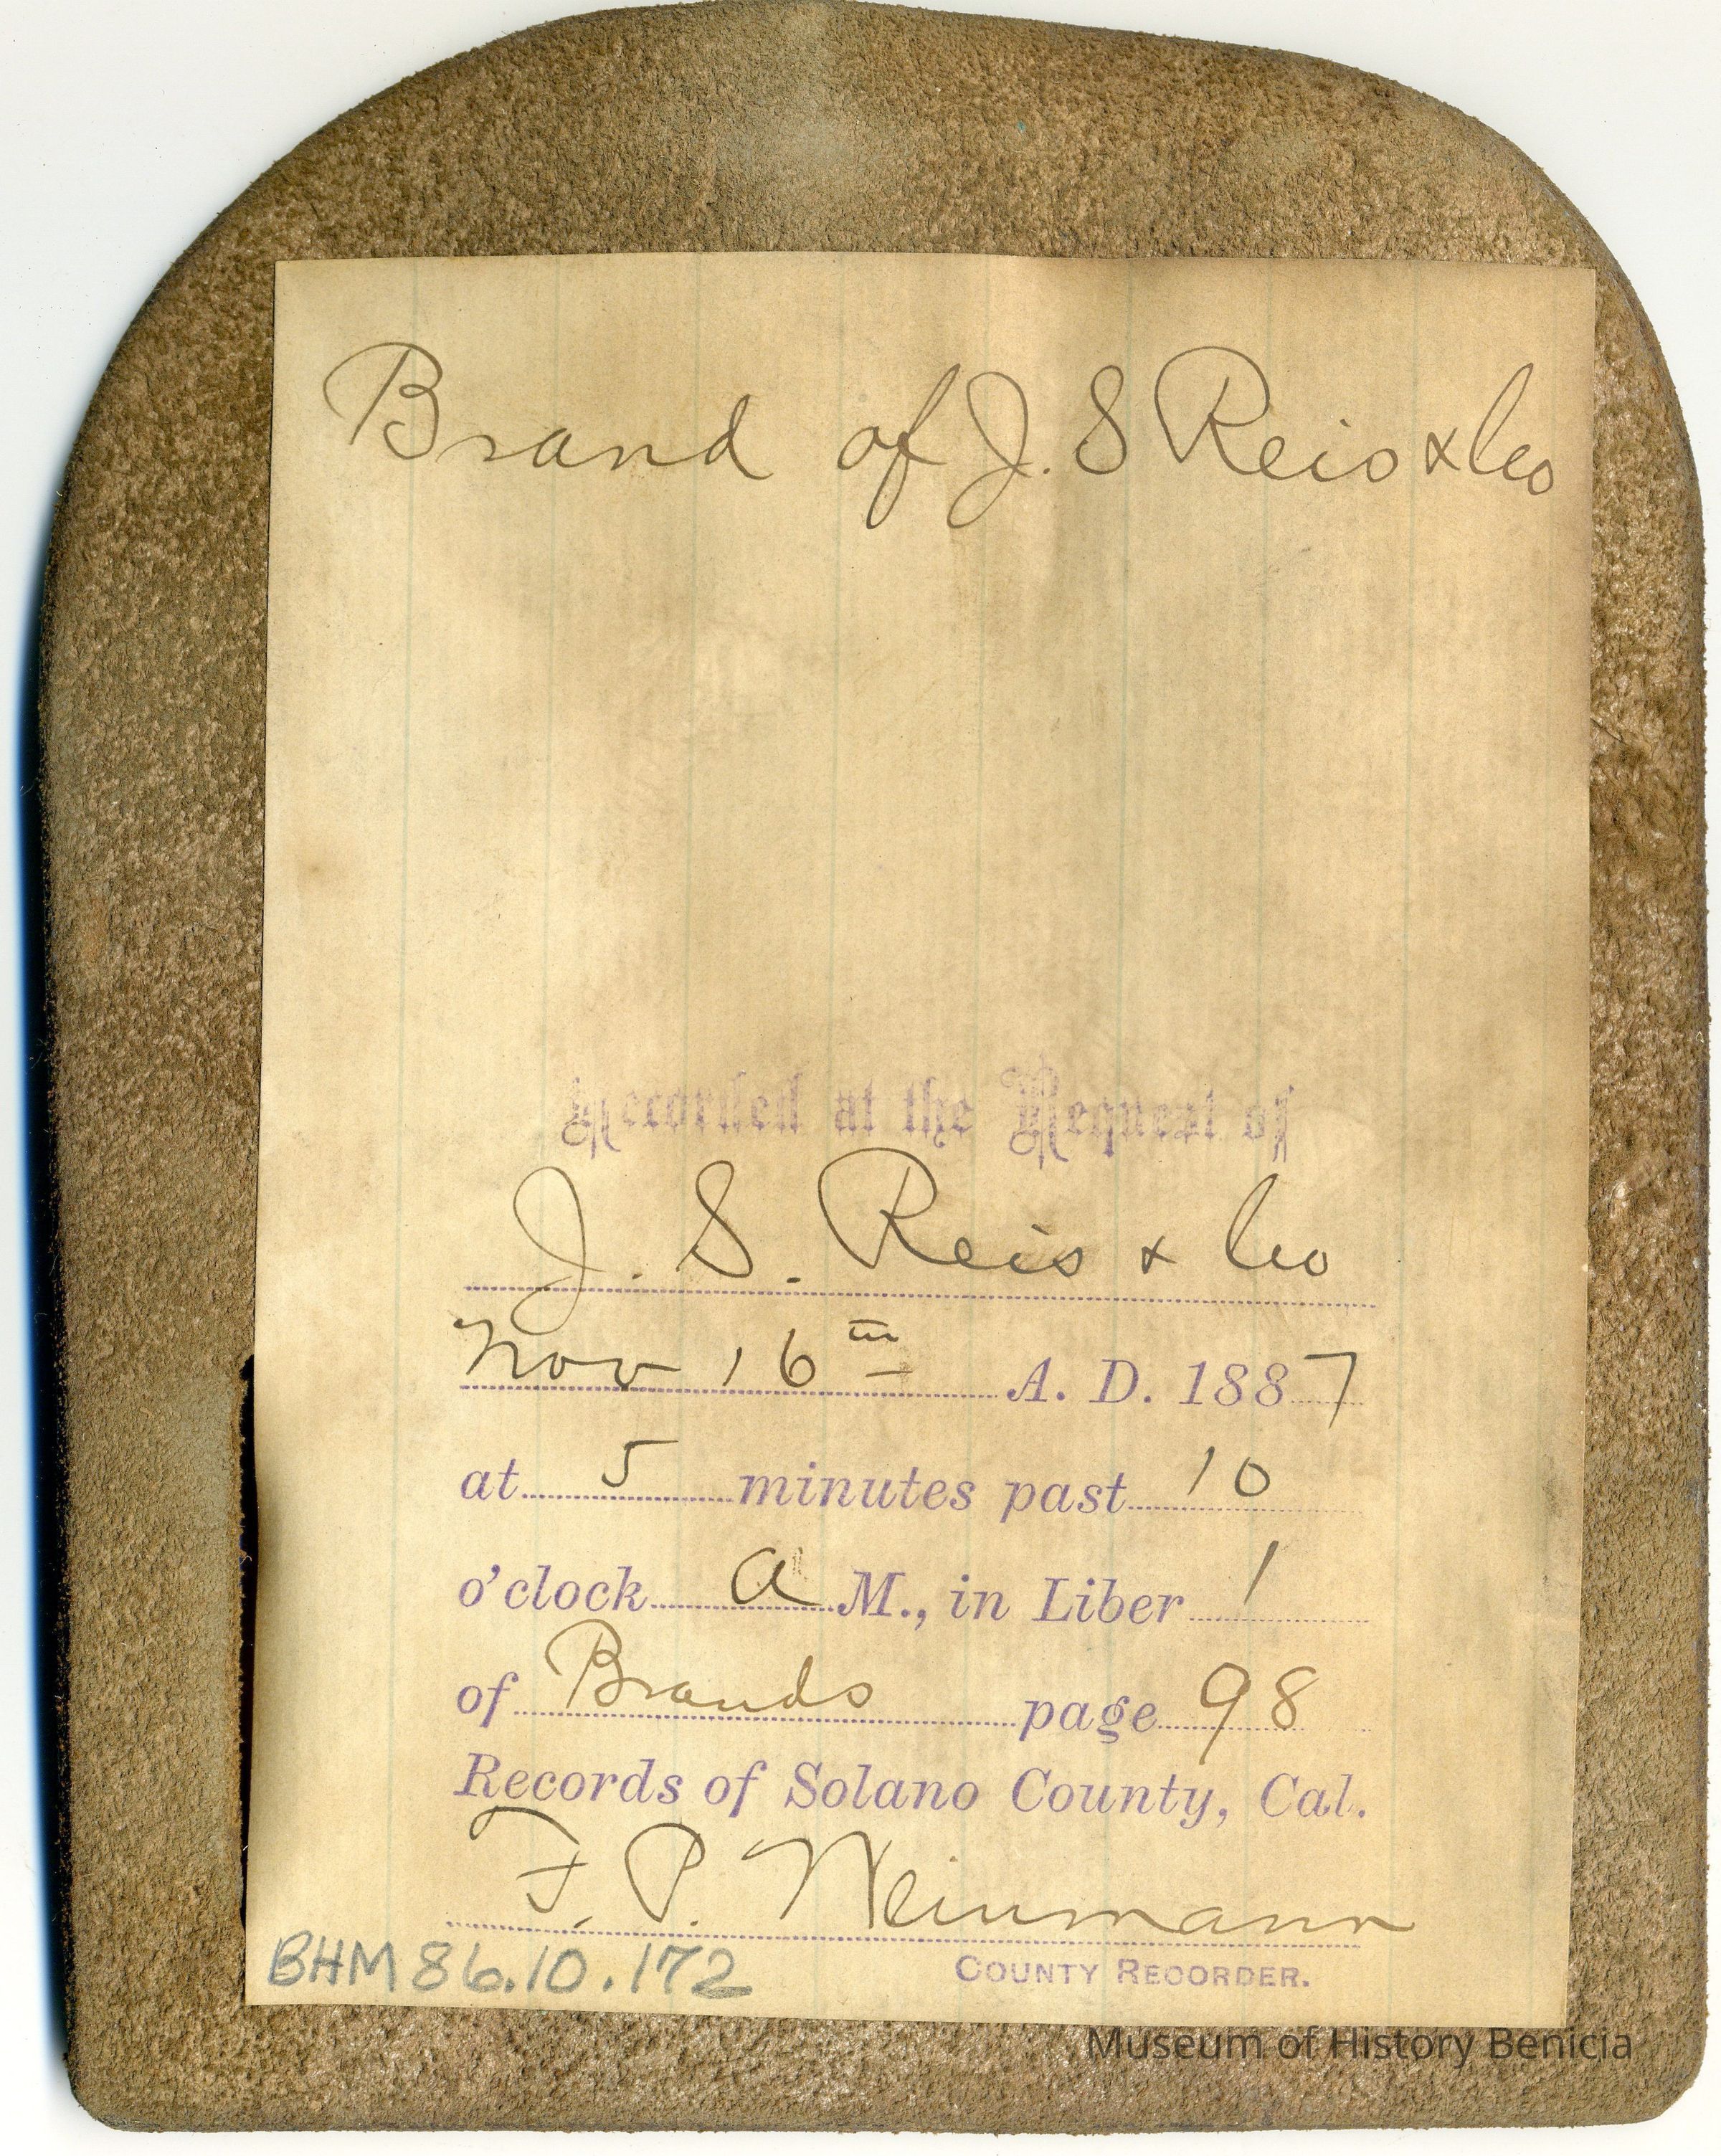 Brand of J. S Reis & Co
Recorded at the Request of
J. S. Reis & Co
Nov 16th A. D. 1887
at 5 minutes past 10
o'clock A M., in Liber 1
of Brands page 98
Records of Solano County, Cal.
F. P. Weinmann
COUNTY RECORDER.
BHM 86.10.172
Museum of History Benicia